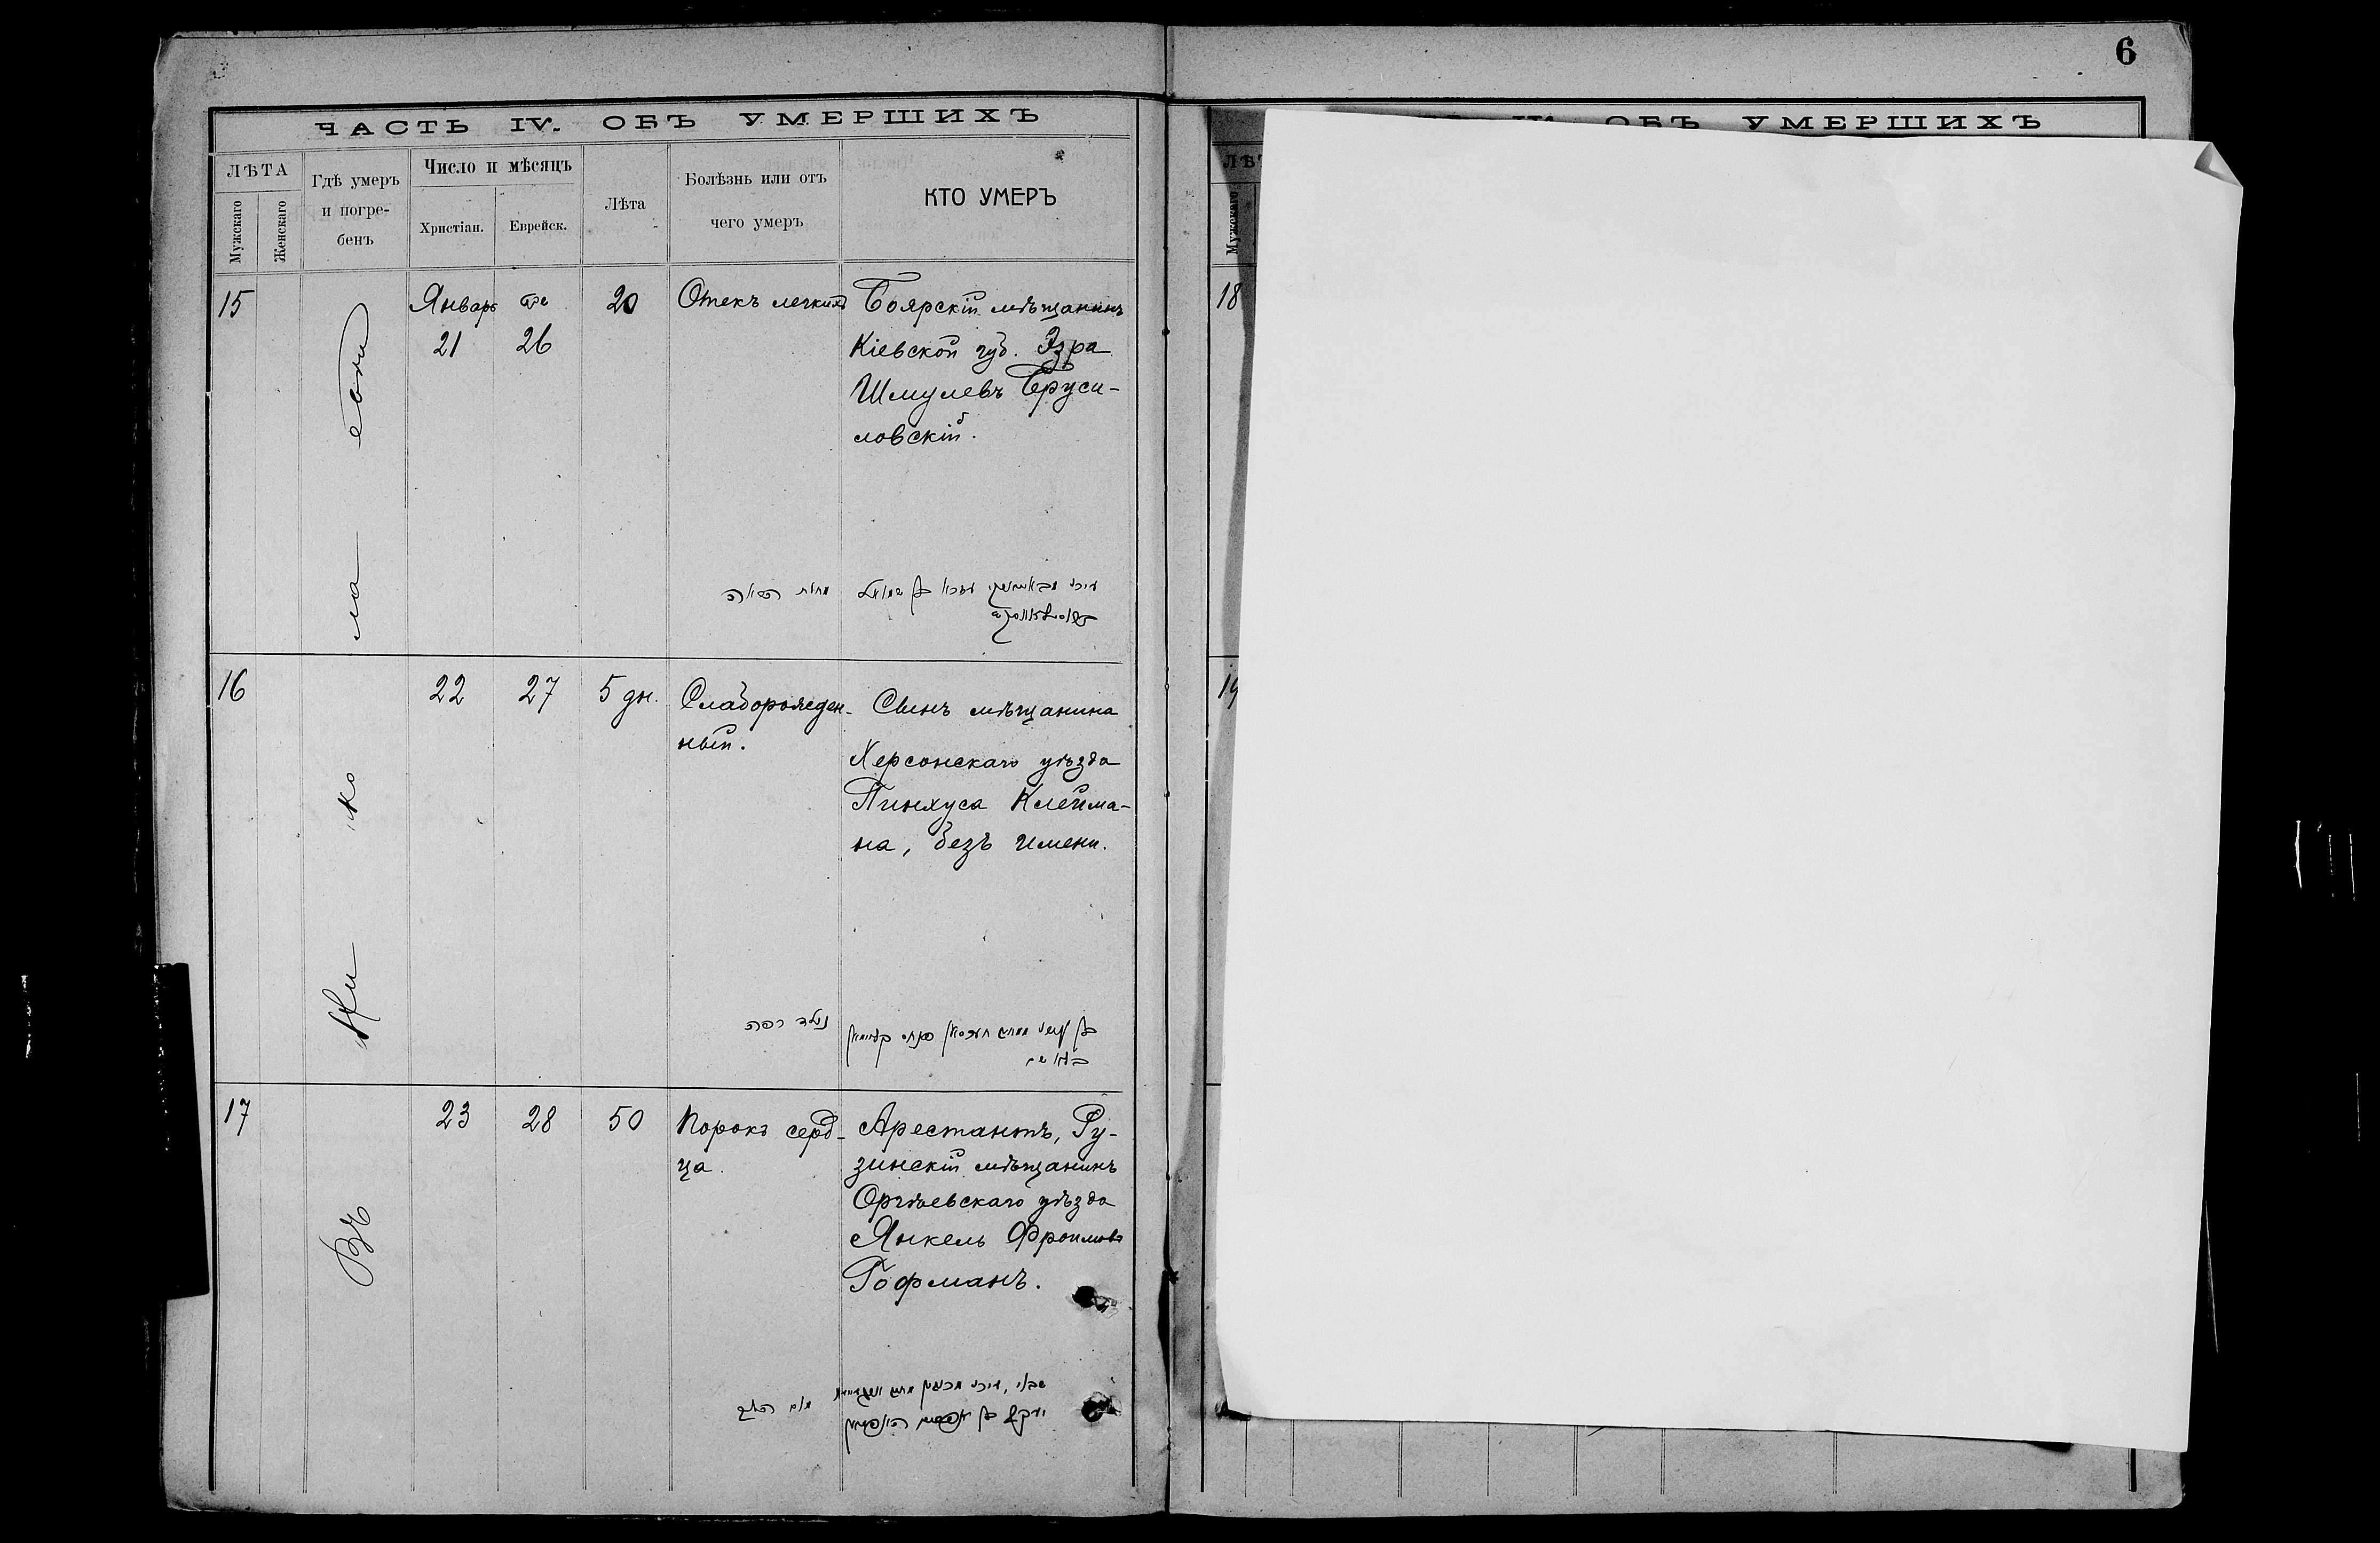 6
ЧАСТЬ IV. ОБЪ УМЕРШИХЪ
ЛѢТА
Мужскаго
Женскаго
Гдѣ умеръ
и погре-
бенъ
Число и мѣсяцъ
Христіан.
Еврейск.
Лѣта
Болѣзнь или отъ
чего умеръ
КТО УМЕРЪ
Въ Ни ко ла еви
15
Январь
21
טבת
26
20
Отекъ легкихъ
Боярскій мѣщанинъ
Кіевской губ. Эзра
Шмулевъ Бруси-
ловскій.
עזרא בן שמואל
16
22
27
5 дн.
Слаборожден-
ный.
Сынъ мѣщанина
Херсонскаго уѣзда
Пинхуса Клейма-
на, безъ имени.
17
23
28
50
Порокъ серд-
ца.
Арестантъ, Ру-
зинскій мѣщанинъ
Оргѣевскаго уѣзда
Янкель Фроимовъ
Гофманъ.
ОБЪ УМЕРШИХЪ
Мужскаго
18
19